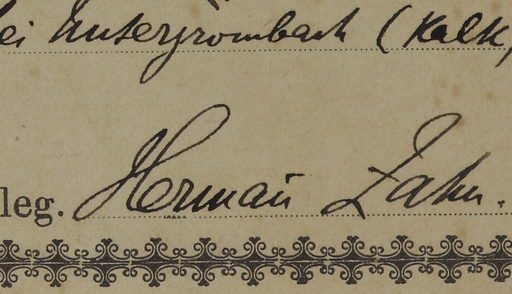 bei Untergrombach (Kalk,
leg. Hermann Zahn.